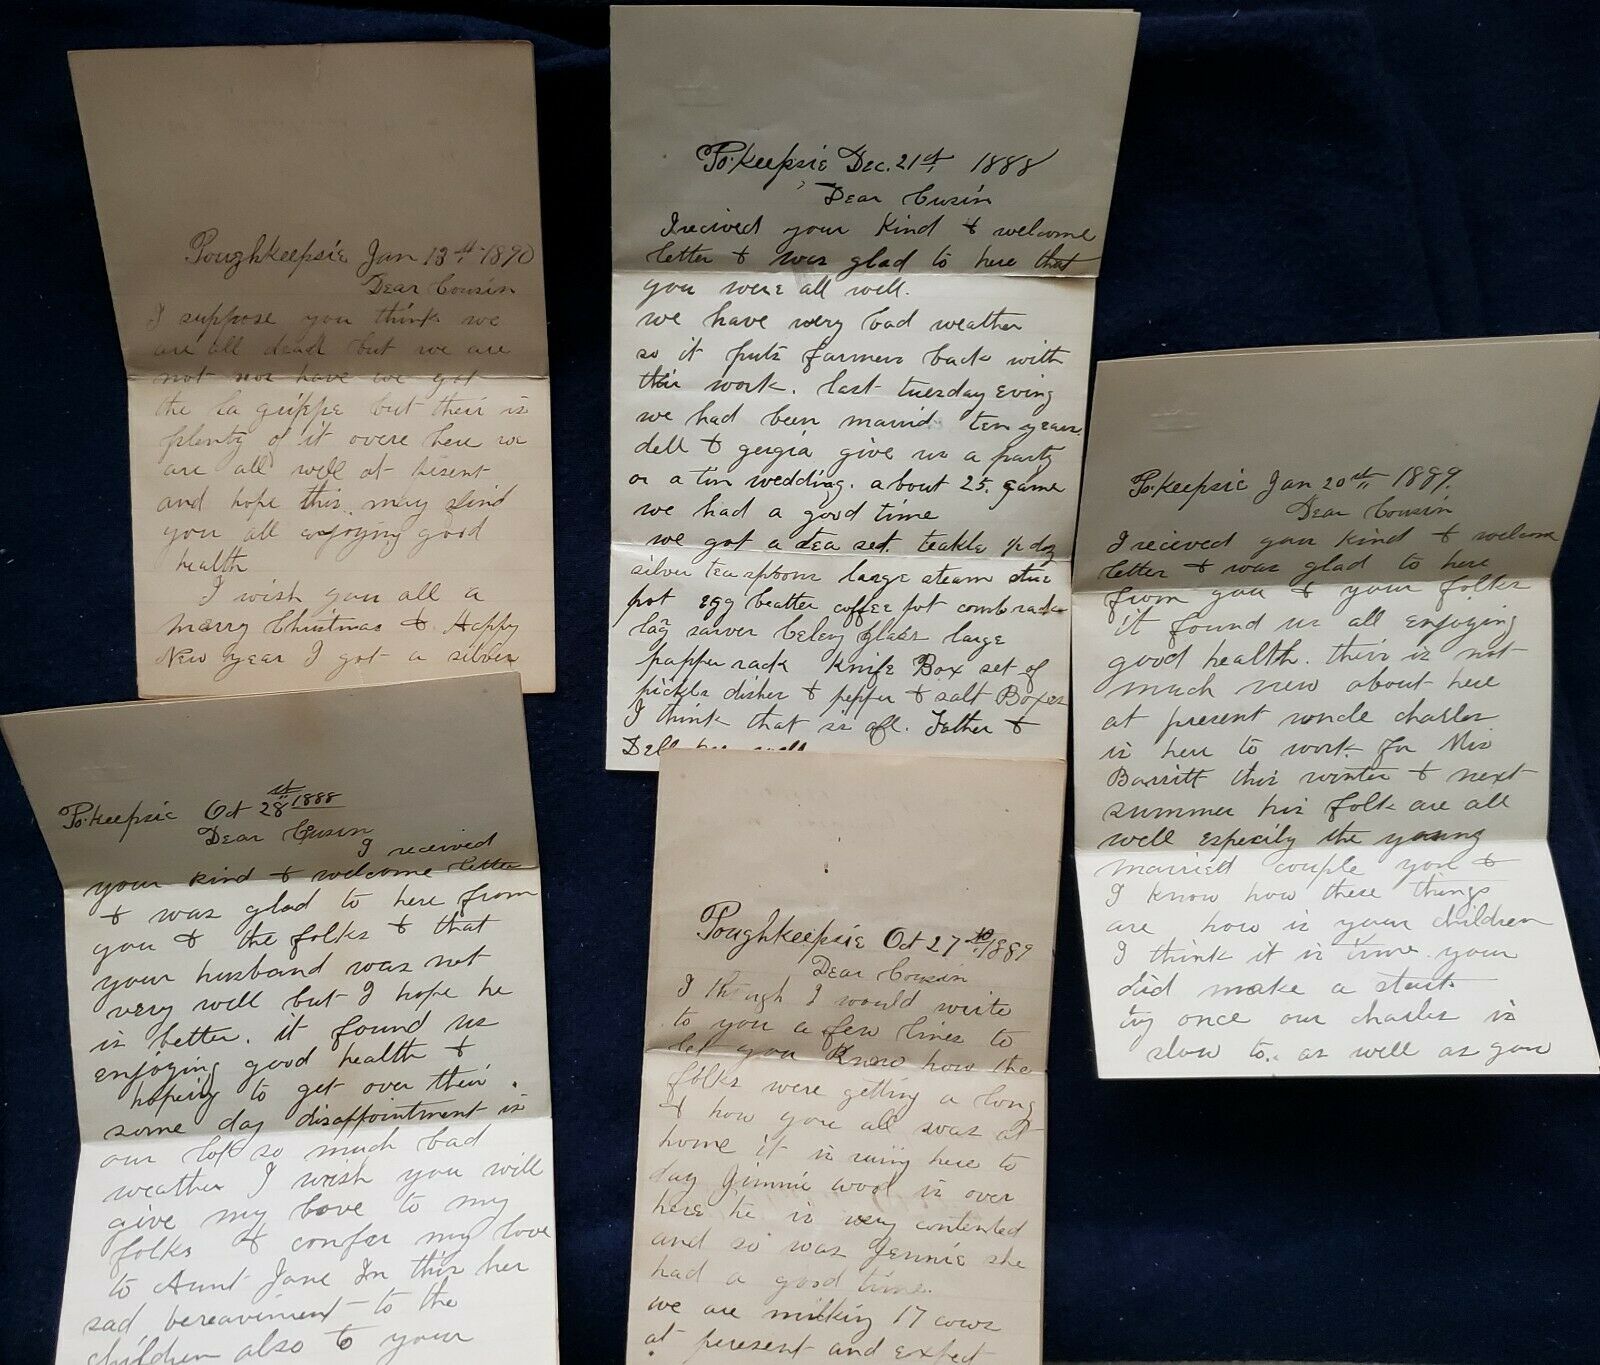 Poughkeepsie Jan 13th 1890
Dear Cousin
I suppose you think we
are all dead but we are
not nor have we got
the La grippe but their is
plenty of it overe here we
are all well at presént
and hope this may find
you all enjoying good
health
I wish you all a
Marry Christmas & Happy
New year I got a silver
Po.keepsie Dec. 21st 1888
Dear Cusin
I recived your Kind & welcome
letter & was glad to here that
you were all well.
we have very bad weather
so it puts farmers back with
thir work. last tuesday eving
we had been marrid ten years.
dell & gergia give us a party
or a tin wedding. about 25. game
we had a good time
we got a tea set. teakle ½ doz
silver tea spoons large steam stue
pot egg beatter coffee pot comb rack
large
papper rack Knife Box set of
pickle disher & pepper & salt Boxes
I think that is all. Father &
Dell
Po.keepsie Jan 20th 1889.
Dear Cousin
I recieved your kind & welcome
letter & was glad to here
from you & your folks
it found us all enjoying
good health. thier is not
much new about here
at present uncle charles
is here to work for Mis
Barritt this winter & next
summer his folk are all
well especily the young
married couple you &
I know how these things
are how is your children
I think it is time your
did make a start
try once our charles is
slow to. as well as you
Po.keepsie Oct 28st 1888
Dear Cousin
I received
your kind & welcome letter
& was glad to here from
you & the folks & that
your husband was not
very well but I hope he
is better. it found us
enjoying good health &
hopeily to get over their
some day disappointment is
our lot so much bad
weather I wish you will
give my love to my
folks & confer my love
to Aunt Jane In this her
sad bereaviment to the
children also to your
Poughkeepsie Oct 27th 1889
Dear Cousin
I though I would write
to you a few lines to
let you Know how the
folks were getting a long
& how you all was at
home it is rainy here to
day Jimmie wool is over
here he is very contented
and so was Jennie she
had a good time.
we are milking 17 cows
at peresent and expect